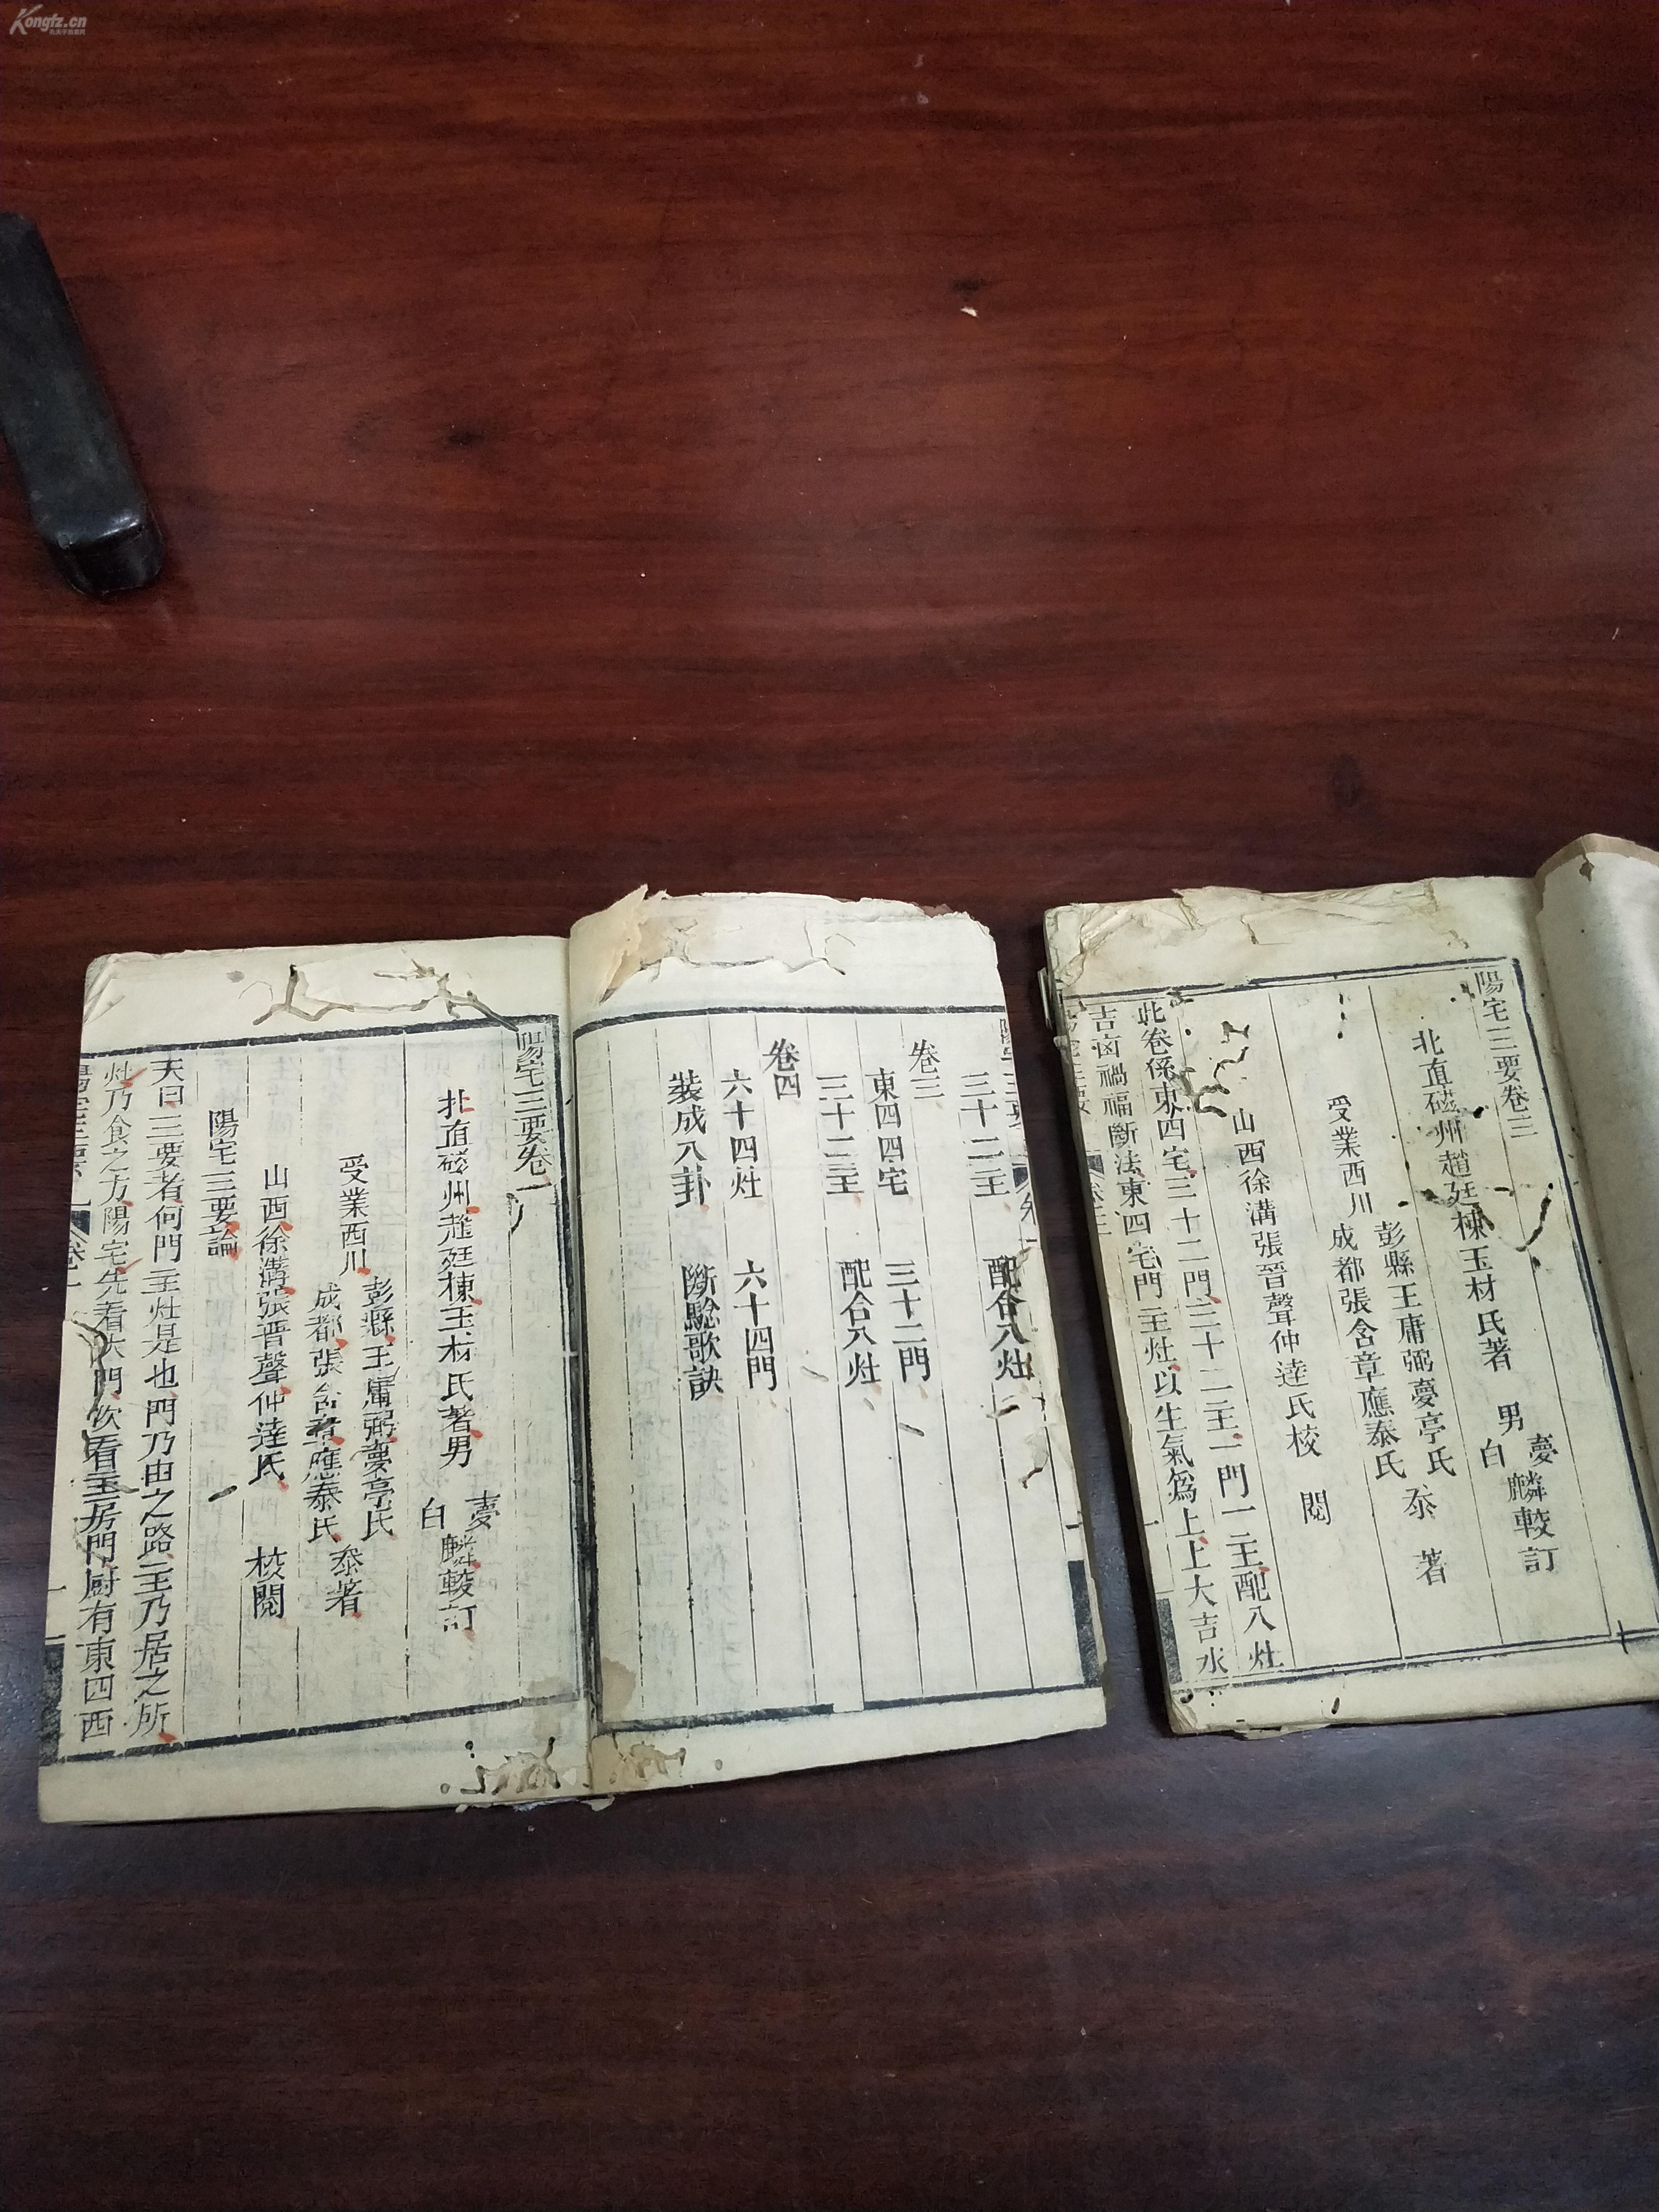 Kongfz.cn
陽宅三要卷三
北直磁州趙廷棟玉材氏著 男
夢
白
麟較訂
受業西川
彭縣王庸弼夢亭氏
成都張含章應泰氏
叅 著
山西徐溝張晉聲仲逹氏校 閱
此卷係東四宅三十二門三十二主一門一主配八灶
吉凶禍福斷法東四宅門主灶以生氣爲上上大吉水
三十二主 配合八灶
卷三
東四四宅 三十二門
三十二主 配合八灶
卷四
六十四灶 六十四門
裝成八卦 斷騐歌訣
陽宅三要卷一
北直磁州趙廷棟玉材氏著男
夢
白
麟較訂
受業西川
彭縣王庸弼夢亭氏
成都張含章應泰氏
叅著
山西徐溝張晉聲仲逹氏 校閱
陽宅三要論
夫曰三要者何門主灶是也門乃由之路主乃居之所
灶乃食之方陽宅先看大門次看主房門厨有東四西